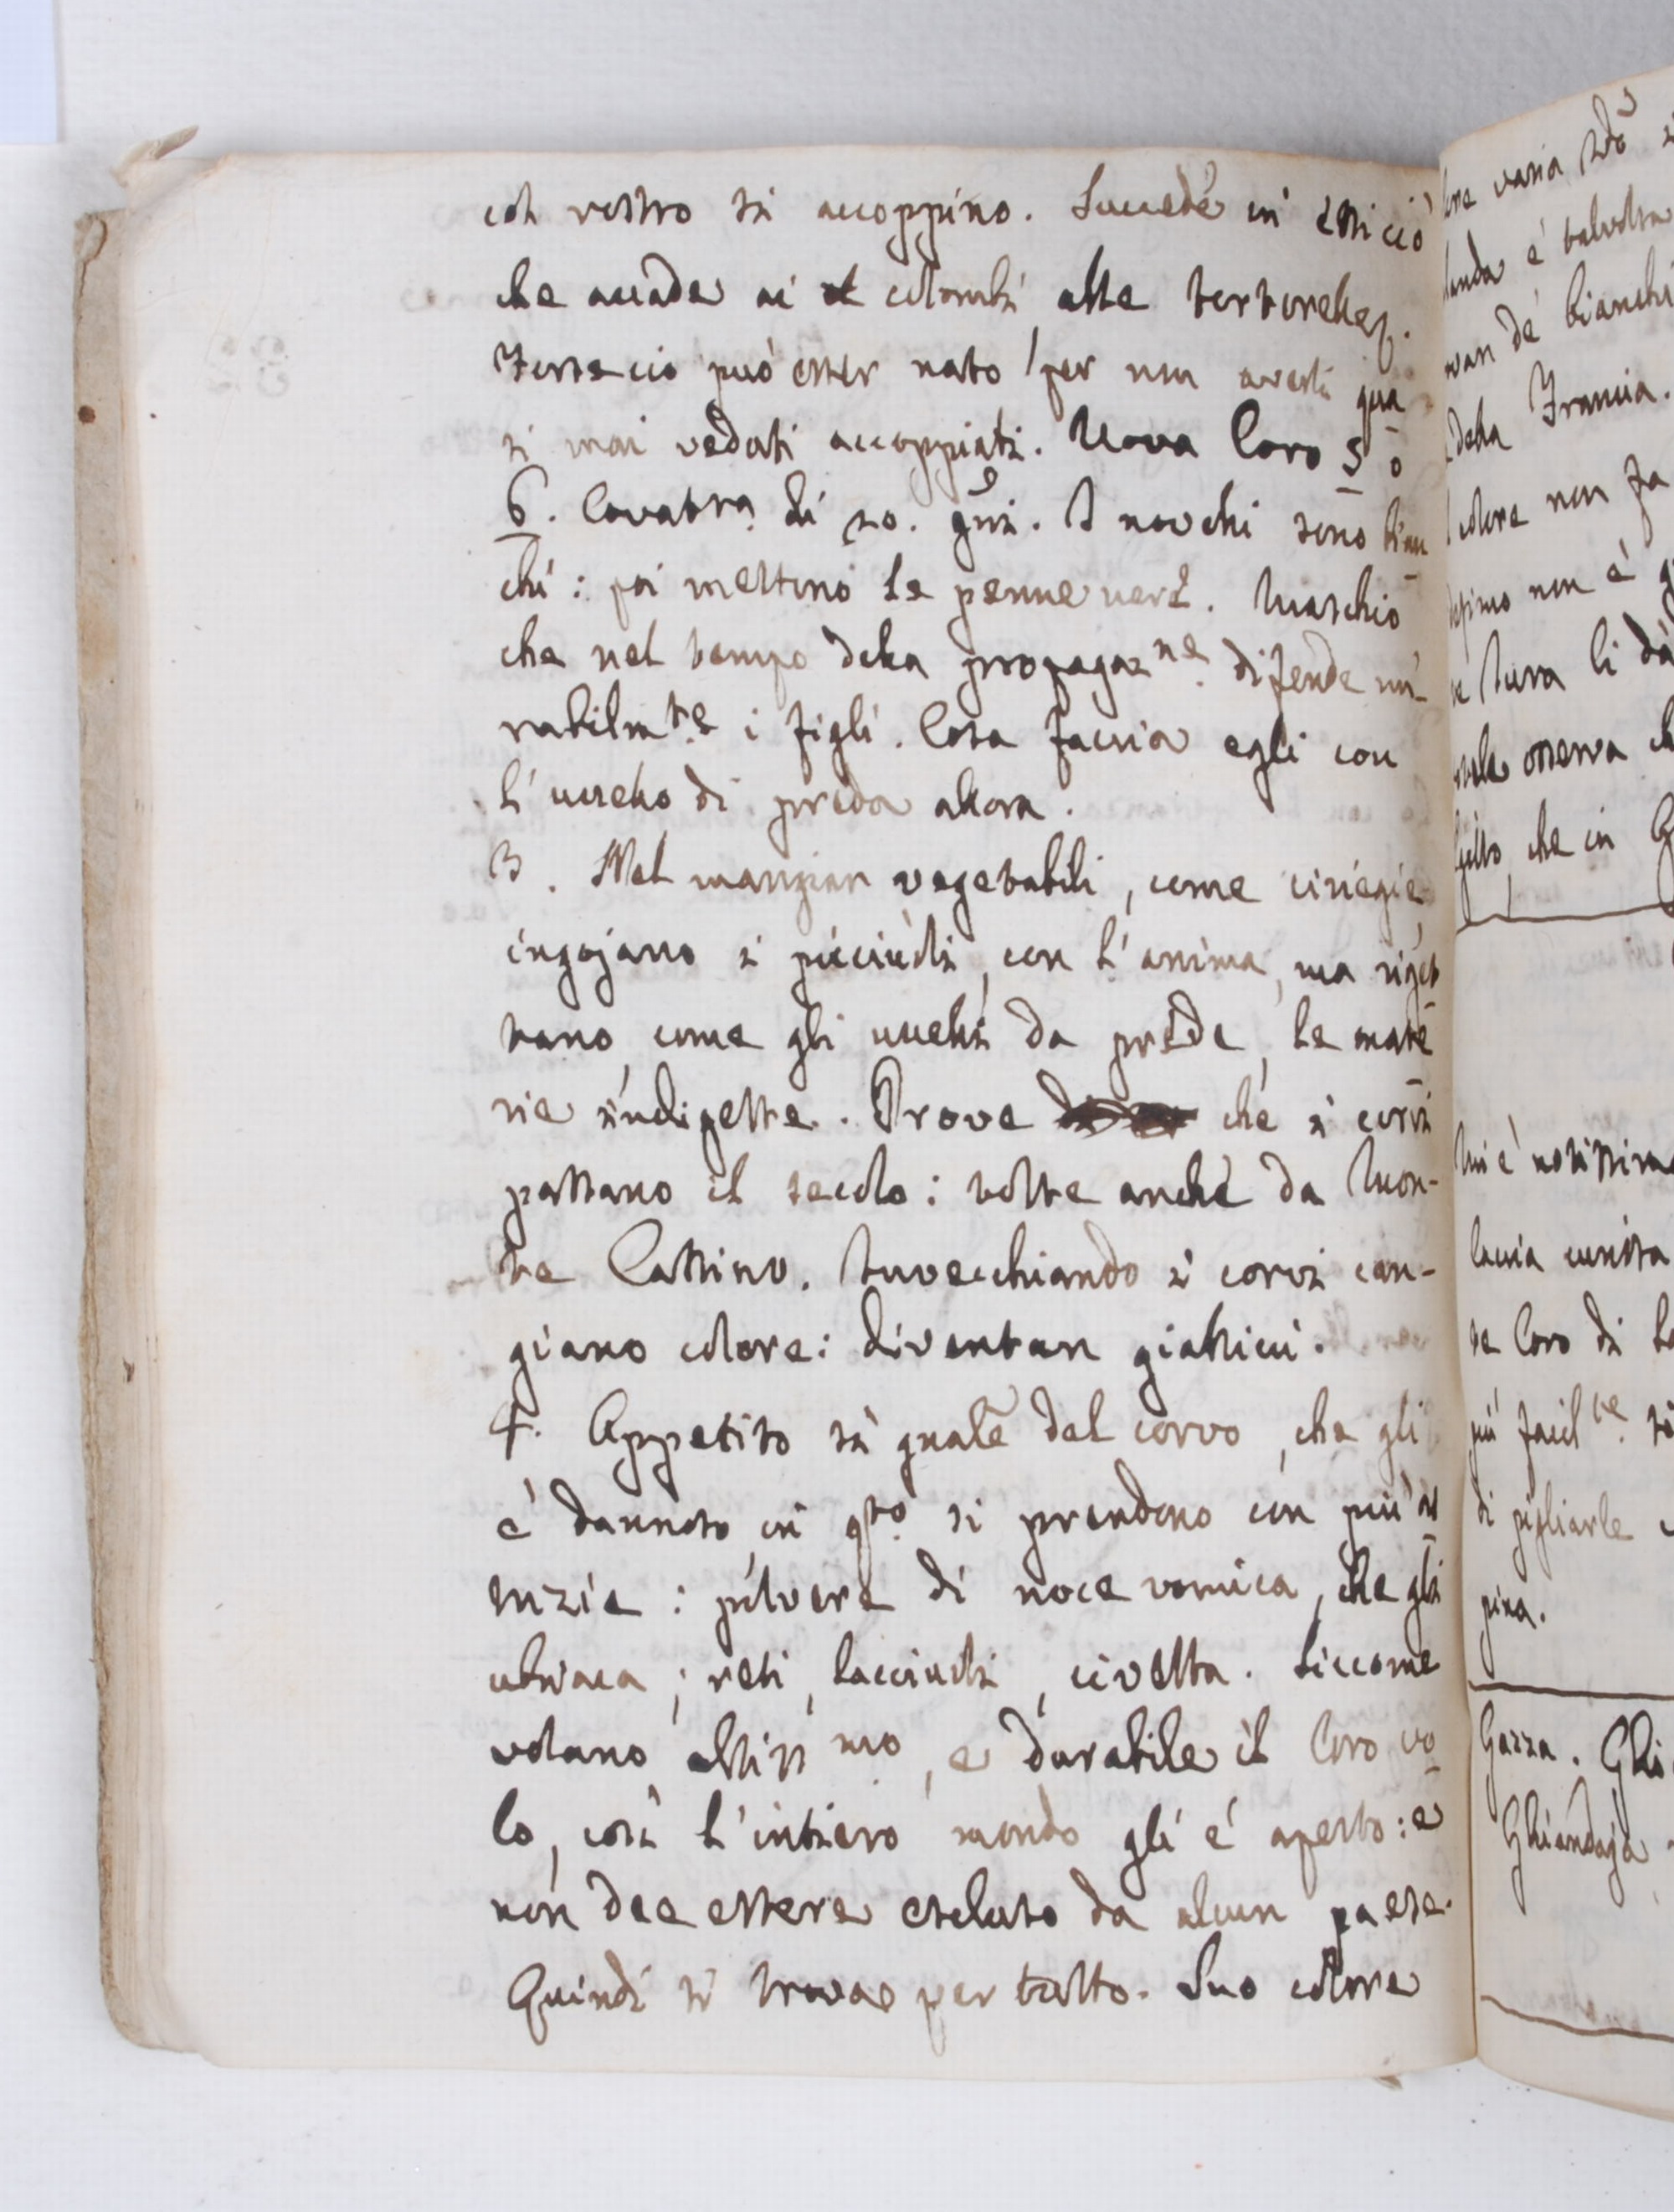 col rostro si accoppino. Succede in essi ciò
che accade ai colombi, alle tortorelle.
Forse ciò può esser nato per non averli qua
si mai veduti accoppiati. Uova loro 5 o
6. Covatra di 20. gni. I novelli sono bian
chi: poi mettino le penne nere. Maschio
che nel tempo della propagazne. difende mi-
rabilmte. i figli. Cosa faccia egli con
l'uccello di preda allora.
3. Nel mangiar vegetabili, come ciriegie,
ingojano i picciuoli, con l'anima, ma riget
tano, come gli uccelli da prede, le mate
rie indigeste. Prove che i corvi
passano il secolo: tolte anche da Mon-
te Cassino. Invecchiando i corvi can-
giano colore: diventan giallicci.
4. Appetito si quale del corvo, che gli
è dannoso, in qto. si prendono con più as
tuzie: polvere di noce vomica, che gli
ubriaca; reti, lacciuoli, civetta. Siccome
volano altissmo., e durabile il loro vo
lo, così l'intiero mondo gli è aperto: e
non dee essere escluso da alcun paese.
Quindi si trova per tutto. Suo colore
varia
è talvolta
bianchi
della Francia.
colore non fa
non è
li dà
osserva
che in G
è notissima
loro di
più facilte.
di pigliarle
Gazza. Ghi
Ghiandaja